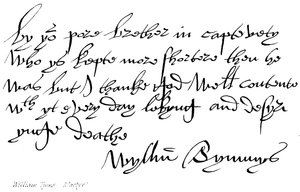 by yor pore brether in captevety
who ys kepte more shorter then he
was but I thanke god well contente
wth yt every day lokyng and desyr
ynge deathe
Wyllm Tymmys
William Tyms 'Martyr'